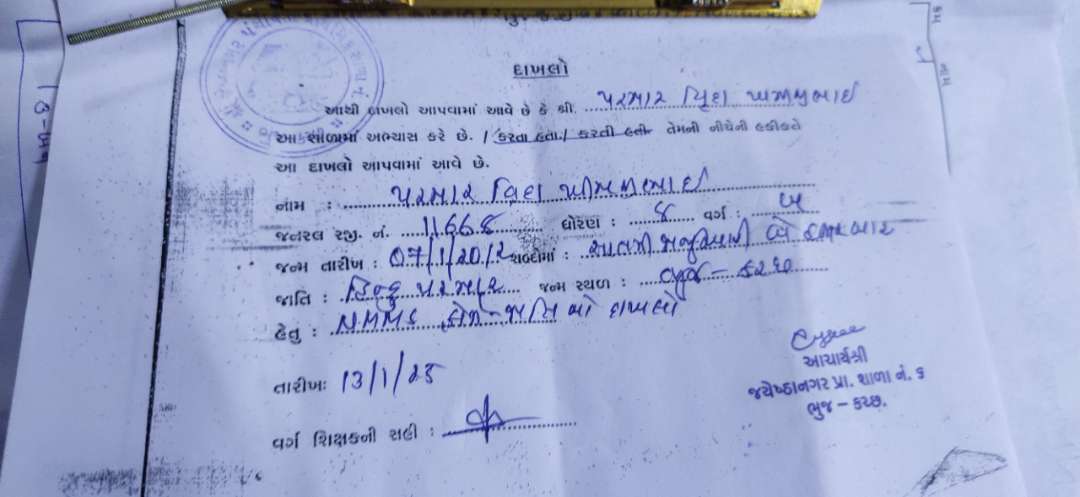 દાખલો
આથી દાખલો આપવામાં આવે છે કે શ્રી. પરમાર
આ શાળામાં અભ્યાસ કરે છે. / કરતા હતા./ કરતી હતી તેમની નીચેની હકીકતે
આ દાખલો આપવામાં આવે છે.
નામ : પરમાર
જનરલ રજી. નં. 11668 ધોરણ : ૮ વર્ગ : બ
જન્મ તારીખ : 07/1/2012 શબ્દોમાં : સાતમી જાન્યુઆરી બે હજાર બાર
જાતિ : હિન્દુ પરમાર જન્મ સ્થળ : ભુજ - કચ્છ
હેતુ : NMMS નો દાખલો
તારીખઃ 13/1/25
વર્ગ શિક્ષકની સહી :
આચાર્યશ્રી
જયેષ્ઠાનગર પ્રા. શાળા નં. ૬
ભુજ - કચ્છ.